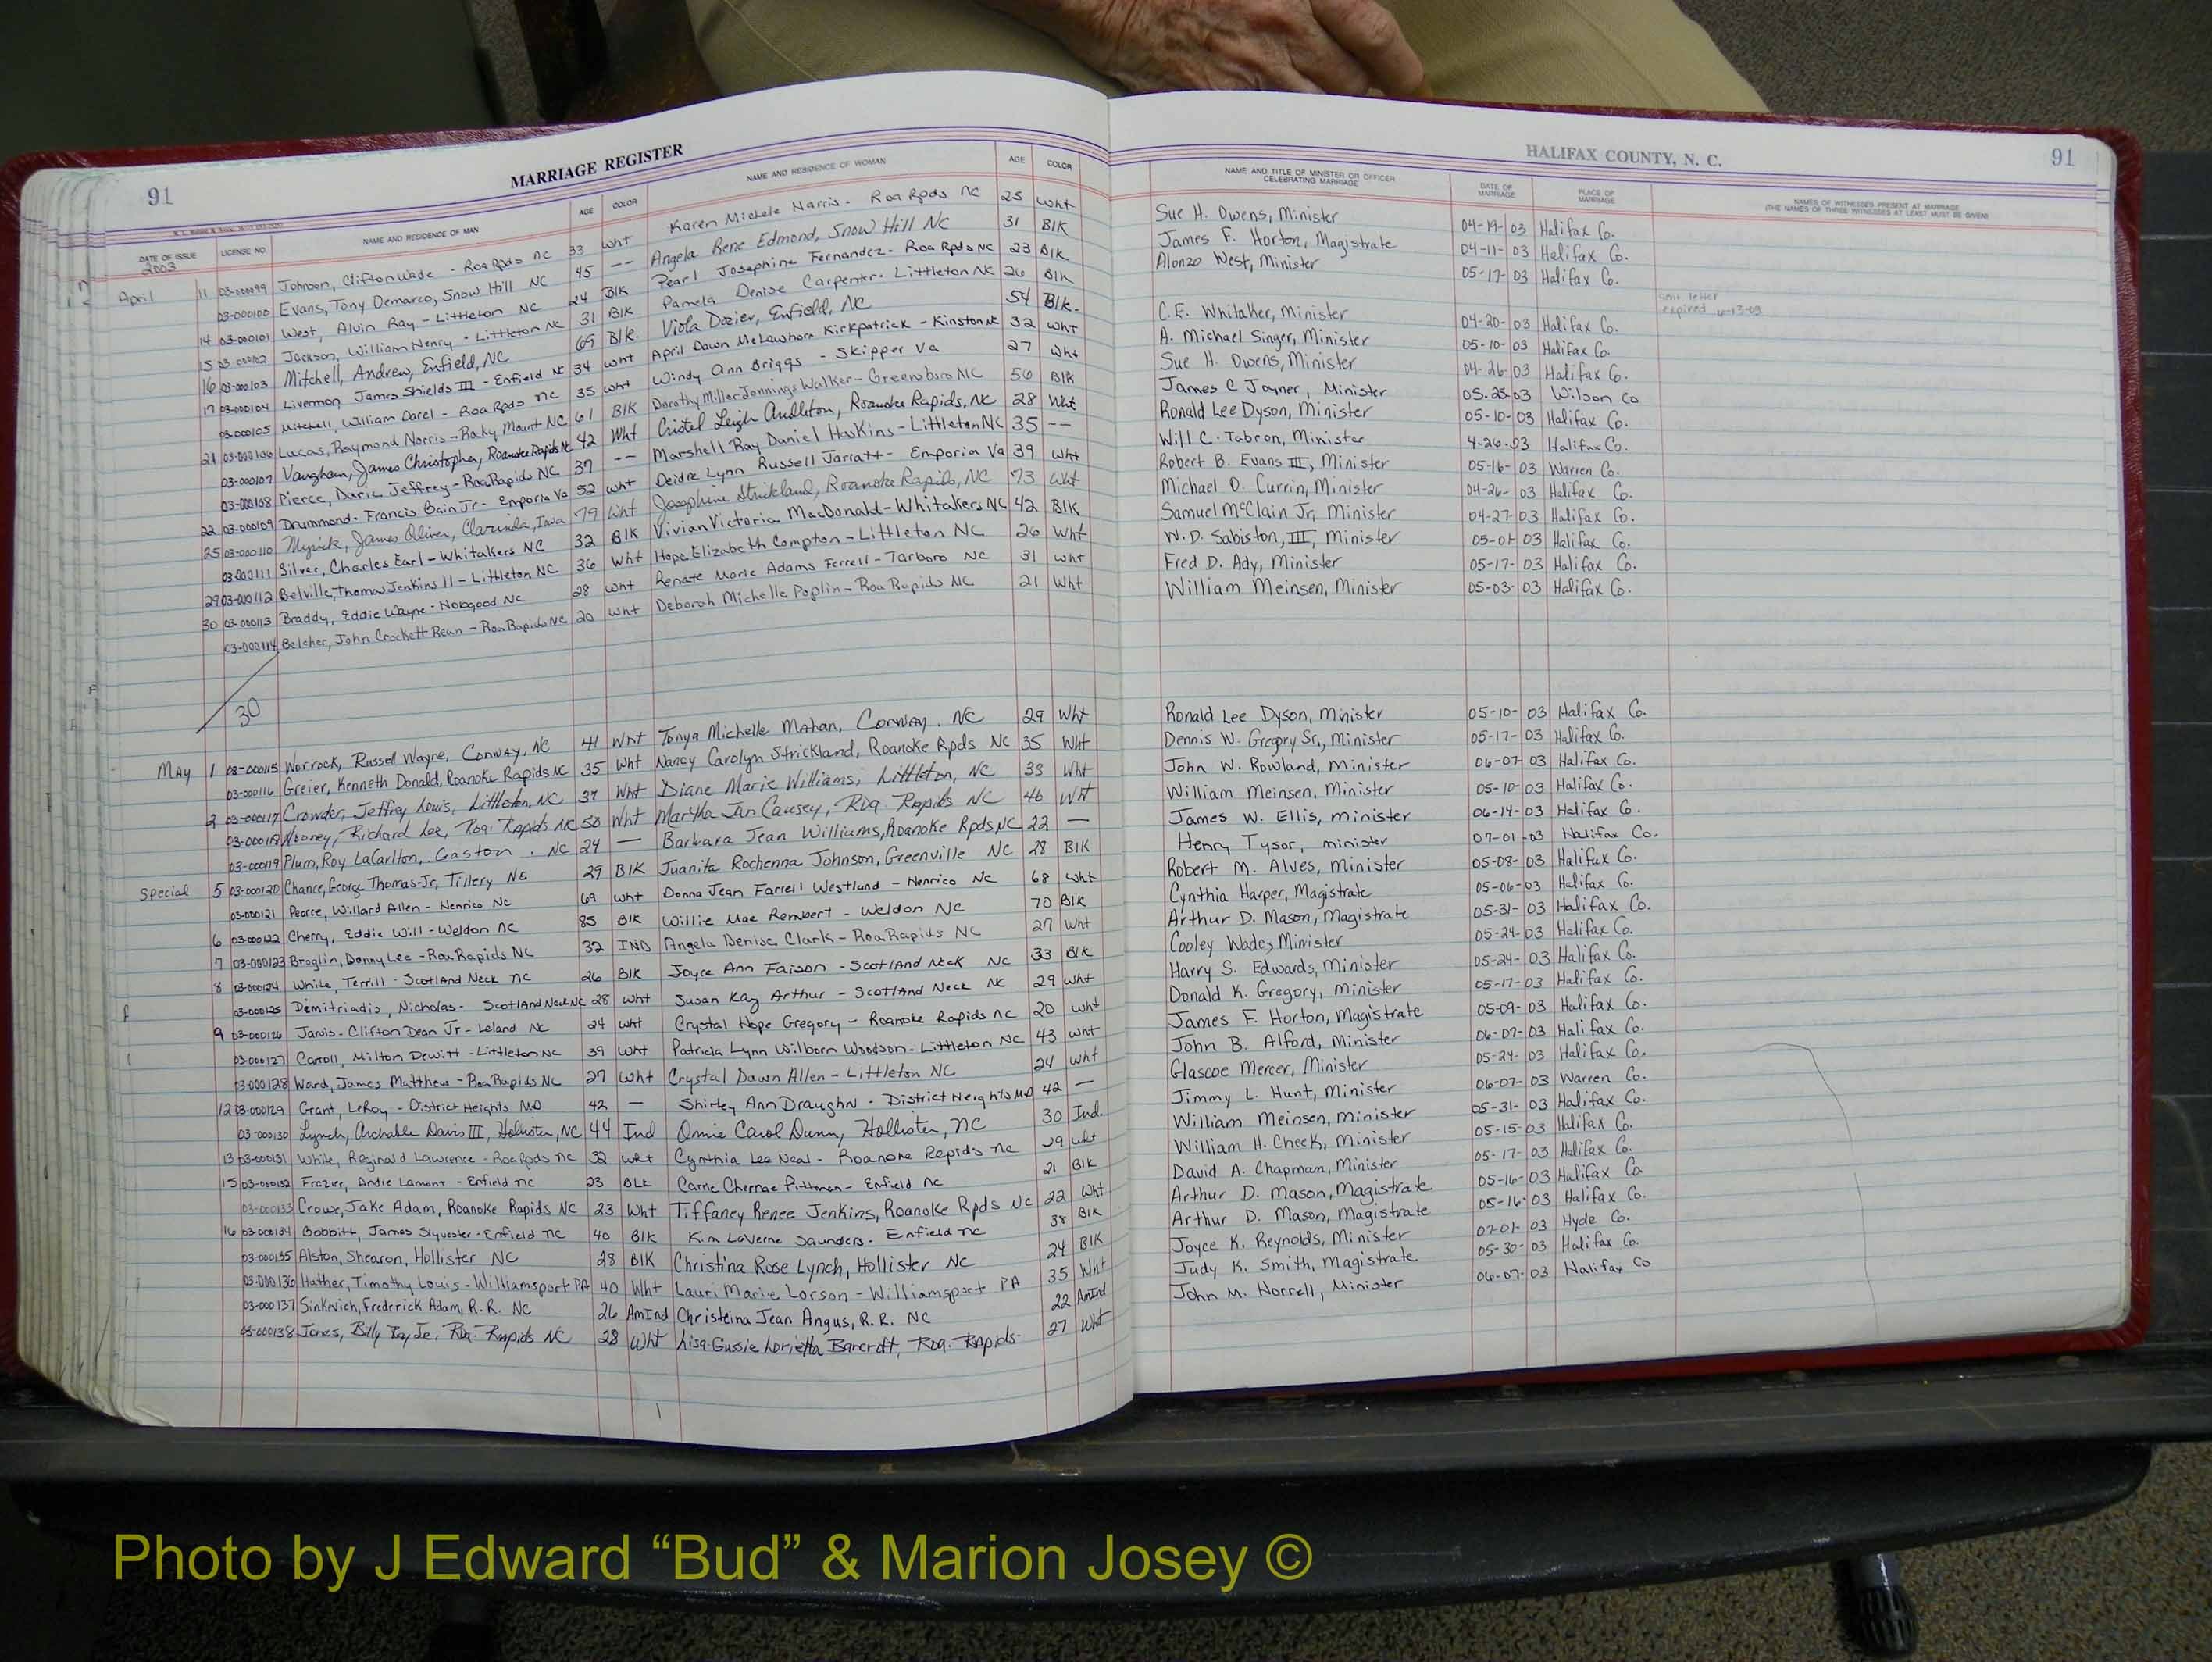 91 MARRIAGE REGISTER
DATE OF ISSUE LICENSE NO. NAME AND RESIDENCE OF MAN AGE COLOR NAME AND RESIDENCE OF WOMAN AGE COLOR
2003
April 11 03-000099 Johnson, Clifton Wade - Roa Rpds NC 33 Wht Karen Michele Harris - Roa Rpds NC 25 Wht
03-000100 Evans, Tony Demarco, Snow Hill NC 45 -- Angela Rene Edmond, Snow Hill NC 31 Blk
14 03-000101 West, Alvin Ray - Littleton NC 24 Blk Pearl Josephine Fernandez - Roa Rpds NC 23 Blk
15 03-000102 Jackson, William Henry - Littleton NC 31 Blk Pamela Denise Carpenter - Littleton NC 26 Blk
16 03-000103 Mitchell, Andrew, Enfield, NC 69 Blk. Viola Dozier, Enfield, NC 54 Blk.
17 03-000104 Livermon, James Shields III - Enfield NC 34 Wht April Dawn McLawhorn Kirkpatrick - Kinston NC 32 Wht
03-000105 Mitchell, William Darel - Roa Rpds NC 35 Wht Windy Ann Briggs - Skipper Va 27 Wht
21 03-000106 Lucas, Raymond Norris - Rocky Mount NC 61 Blk Dorothy Miller Jennings Walker - Greensboro NC 56 Blk
03-000107 Vaughan, James Christopher, Roanoke Rapids NC 42 Wht Cristel Leigh Audleton, Roanoke Rapids, NC 28 Wht
03-000108 Pierce, Daric Jeffrey - Roa Rapids NC 37 -- Marshell Ray Daniel Haskins - Littleton NC 35 --
22 03-000109 Drummond - Francis Bain Jr - Emporia Va 52 Wht Deidre Lynn Russell Jarratt - Emporia Va 39 Wht
25 03-000110 Myrick, James Oliver, Clarinda, Iowa 79 Wht Josephine Strickland, Roanoke Rapids, NC 73 Wht
03-000111 Silver, Charles Earl - Whitakers NC 32 Blk Vivian Victoria MacDonald - Whitakers NC 42 Blk
29 03-000112 Belville, Thomas Jenkins II - Littleton NC 36 Wht Hope Elizabeth Compton - Littleton NC 26 Wht
30 03-000113 Braddy, Eddie Wayne - Hobgood NC 28 Wht Renate Marie Adams Ferrell - Tarboro NC 31 Wht
03-000114 Belcher, John Crockett Bean - Roa Rapids NC 20 Wht Deborah Michelle Poplin - Roa Rapids NC 21 Wht
30
May 1 03-000115 Worrock, Russell Wayne, Conway, NC 41 Wht Tonya Michelle Mahan, Conway, NC 29 Wht
03-000116 Greier, Kenneth Donald, Roanoke Rapids NC 35 Wht Nancy Carolyn Strickland, Roanoke Rpds NC 35 Wht
2 03-000117 Crowder, Jeffrey Louis, Littleton, NC 37 Wht Diane Marie Williams, Littleton, NC 33 Wht
03-000118 Mooney, Richard Lee, Roa. Rapids NC 50 Wht Martha Jan Causey, Roa. Rapids NC 46 Wht
03-000119 Plum, Roy LaCarlton, Gaston, NC 24 — Barbara Jean Williams, Roanoke Rpds NC 22 —
Special 5 03-000120 Chance, George Thomas Jr, Tillery NC 29 Blk Juanita Rochenna Johnson, Greenville NC 28 Blk
03-000121 Pearce, Willard Allen - Henrico NC 69 Wht Donna Jean Farrell Westlund - Henrico NC 68 Wht
6 03-000122 Cherry, Eddie Will - Weldon NC 85 Blk Willie Mae Rembert - Weldon NC 70 Blk
7 03-000123 Broglin, Danny Lee - Roa Rapids NC 32 IND Angela Denise Clark - Roa Rapids NC 27 Wht
8 03-000124 White, Terrill - Scotland Neck NC 26 Blk Joyce Ann Faison - Scotland Neck NC 33 Blk
03-000125 Demitriadis, Nicholas - Scotland Neck NC 28 Wht Susan Kay Arthur - Scotland Neck NC 29 Wht
9 03-000126 Jarvis - Clifton Dean Jr - Leland NC 24 Wht Crystal Hope Gregory - Roanoke Rapids NC 20 Wht
03-000127 Carroll, Milton Dewitt - Littleton NC 39 Wht Patricia Lynn Wilborn Woodson - Littleton NC 43 Wht
03-000128 Ward, James Matthew - Roa Rapids NC 27 Wht Crystal Dawn Allen - Littleton NC 24 Wht
12 03-000129 Grant, LeRoy - District Heights MD 42 — Shirley Ann Draughn - District Heights MD 42 —
03-000130 Lynch, Archable Davis III, Hollister, NC 44 Ind Onnie Carol Dunn, Hollister, NC 30 Ind.
13 03-000131 White, Reginald Lawrence - Roa Rpds NC 32 Wht Cynthia Lee Neal - Roanoke Rapids NC 29 Wht
15 03-000132 Frazier, Andre Lamont - Enfield NC 23 Blk Carrie Chernae Pittman - Enfield NC 21 Blk
03-000133 Crowe, Jake Adam, Roanoke Rapids NC 23 Wht Tiffaney Renee Jenkins, Roanoke Rpds NC 22 Wht
16 03-000134 Bobbitt, James Slyvester - Enfield NC 40 Blk Kim LaVerne Saunders - Enfield NC 38 Blk
03-000135 Alston, Shearon, Hollister NC 28 Blk Christina Rose Lynch, Hollister NC 24 Blk
03-000136 Huther, Timothy Louis - Williamsport PA 40 Wht Lauri Marie Lorson - Williamsport PA 35 Wht
03-000137 Sinkevich, Frederick Adam, R.R. NC 26 AmInd Christeina Jean Angus, R.R. NC 22 AmInd
03-000138 Jones, Billy Ray Jr, Roa. Rapids NC 28 Wht Lisa Gussie Lorietta Barcroft, Roa. Rapids 27 Wht
HALIFAX COUNTY, N. C. 91
NAME AND TITLE OF MINISTER OR OFFICER CELEBRATING MARRIAGE DATE OF MARRIAGE PLACE OF MARRIAGE NAMES OF WITNESSES PRESENT AT MARRIAGE
(THE NAMES OF THREE WITNESSES AT LEAST MUST BE GIVEN)
Sue H. Owens, Minister 04-19-03 Halifax Co.
James F. Horton, Magistrate 04-11-03 Halifax Co.
Alonzo West, Minister 05-17-03 Halifax Co.
sent letter
expired 6-13-03
C.E. Whitaker, Minister 04-20-03 Halifax Co.
A. Michael Singer, Minister 05-10-03 Halifax Co.
Sue H. Owens, Minister 04-26-03 Halifax Co.
James C Joyner, Minister 05-25-03 Wilson Co
Ronald Lee Dyson, Minister 05-10-03 Halifax Co.
Will C. Tabron, Minister 4-26-03 Halifax Co.
Robert B. Evans III, Minister 05-16-03 Warren Co.
Michael D. Currin, Minister 04-26-03 Halifax Co.
Samuel McClain Jr, Minister 04-27-03 Halifax Co.
W.D. Sabiston, III, Minister 05-01-03 Halifax Co.
Fred D. Ady, Minister 05-17-03 Halifax Co.
William Meinsen, Minister 05-03-03 Halifax Co.
Ronald Lee Dyson, Minister 05-10-03 Halifax Co.
Dennis W. Gregory Sr., Minister 05-17-03 Halifax Co.
John W. Rowland, Minister 06-07-03 Halifax Co.
William Meinsen, Minister 05-10-03 Halifax Co.
James W. Ellis, minister 06-14-03 Halifax Co.
Henry Tysor, minister 07-01-03 Halifax Co.
Robert M. Alves, Minister 05-08-03 Halifax Co.
Cynthia Harper, Magistrate 05-06-03 Halifax Co.
Arthur D. Mason, Magistrate 05-31-03 Halifax Co.
Cooley Wade, Minister 05-24-03 Halifax Co.
Harry S. Edwards, Minister 05-24-03 Halifax Co.
Donald K. Gregory, Minister 05-17-03 Halifax Co.
James F. Horton, Magistrate 05-09-03 Halifax Co.
John B. Alford, Minister 06-07-03 Halifax Co.
Glascoe Mercer, Minister 05-24-03 Halifax Co.
Jimmy L. Hunt, Minister 06-07-03 Warren Co.
William Meinsen, minister 05-31-03 Halifax Co.
William H. Cheek, Minister 05-15-03 Halifax Co.
David A. Chapman, Minister 05-17-03 Halifax Co.
Arthur D. Mason, Magistrate 05-16-03 Halifax Co
Arthur D. Mason, Magistrate 05-16-03 Halifax Co.
Joyce K. Reynolds, Minister 07-01-03 Hyde Co.
Judy K. Smith, Magistrate 05-30-03 Halifax Co.
John M. Horrell, Minister 06-07-03 Halifax Co
Photo by J Edward “Bud” & Marion Josey ©